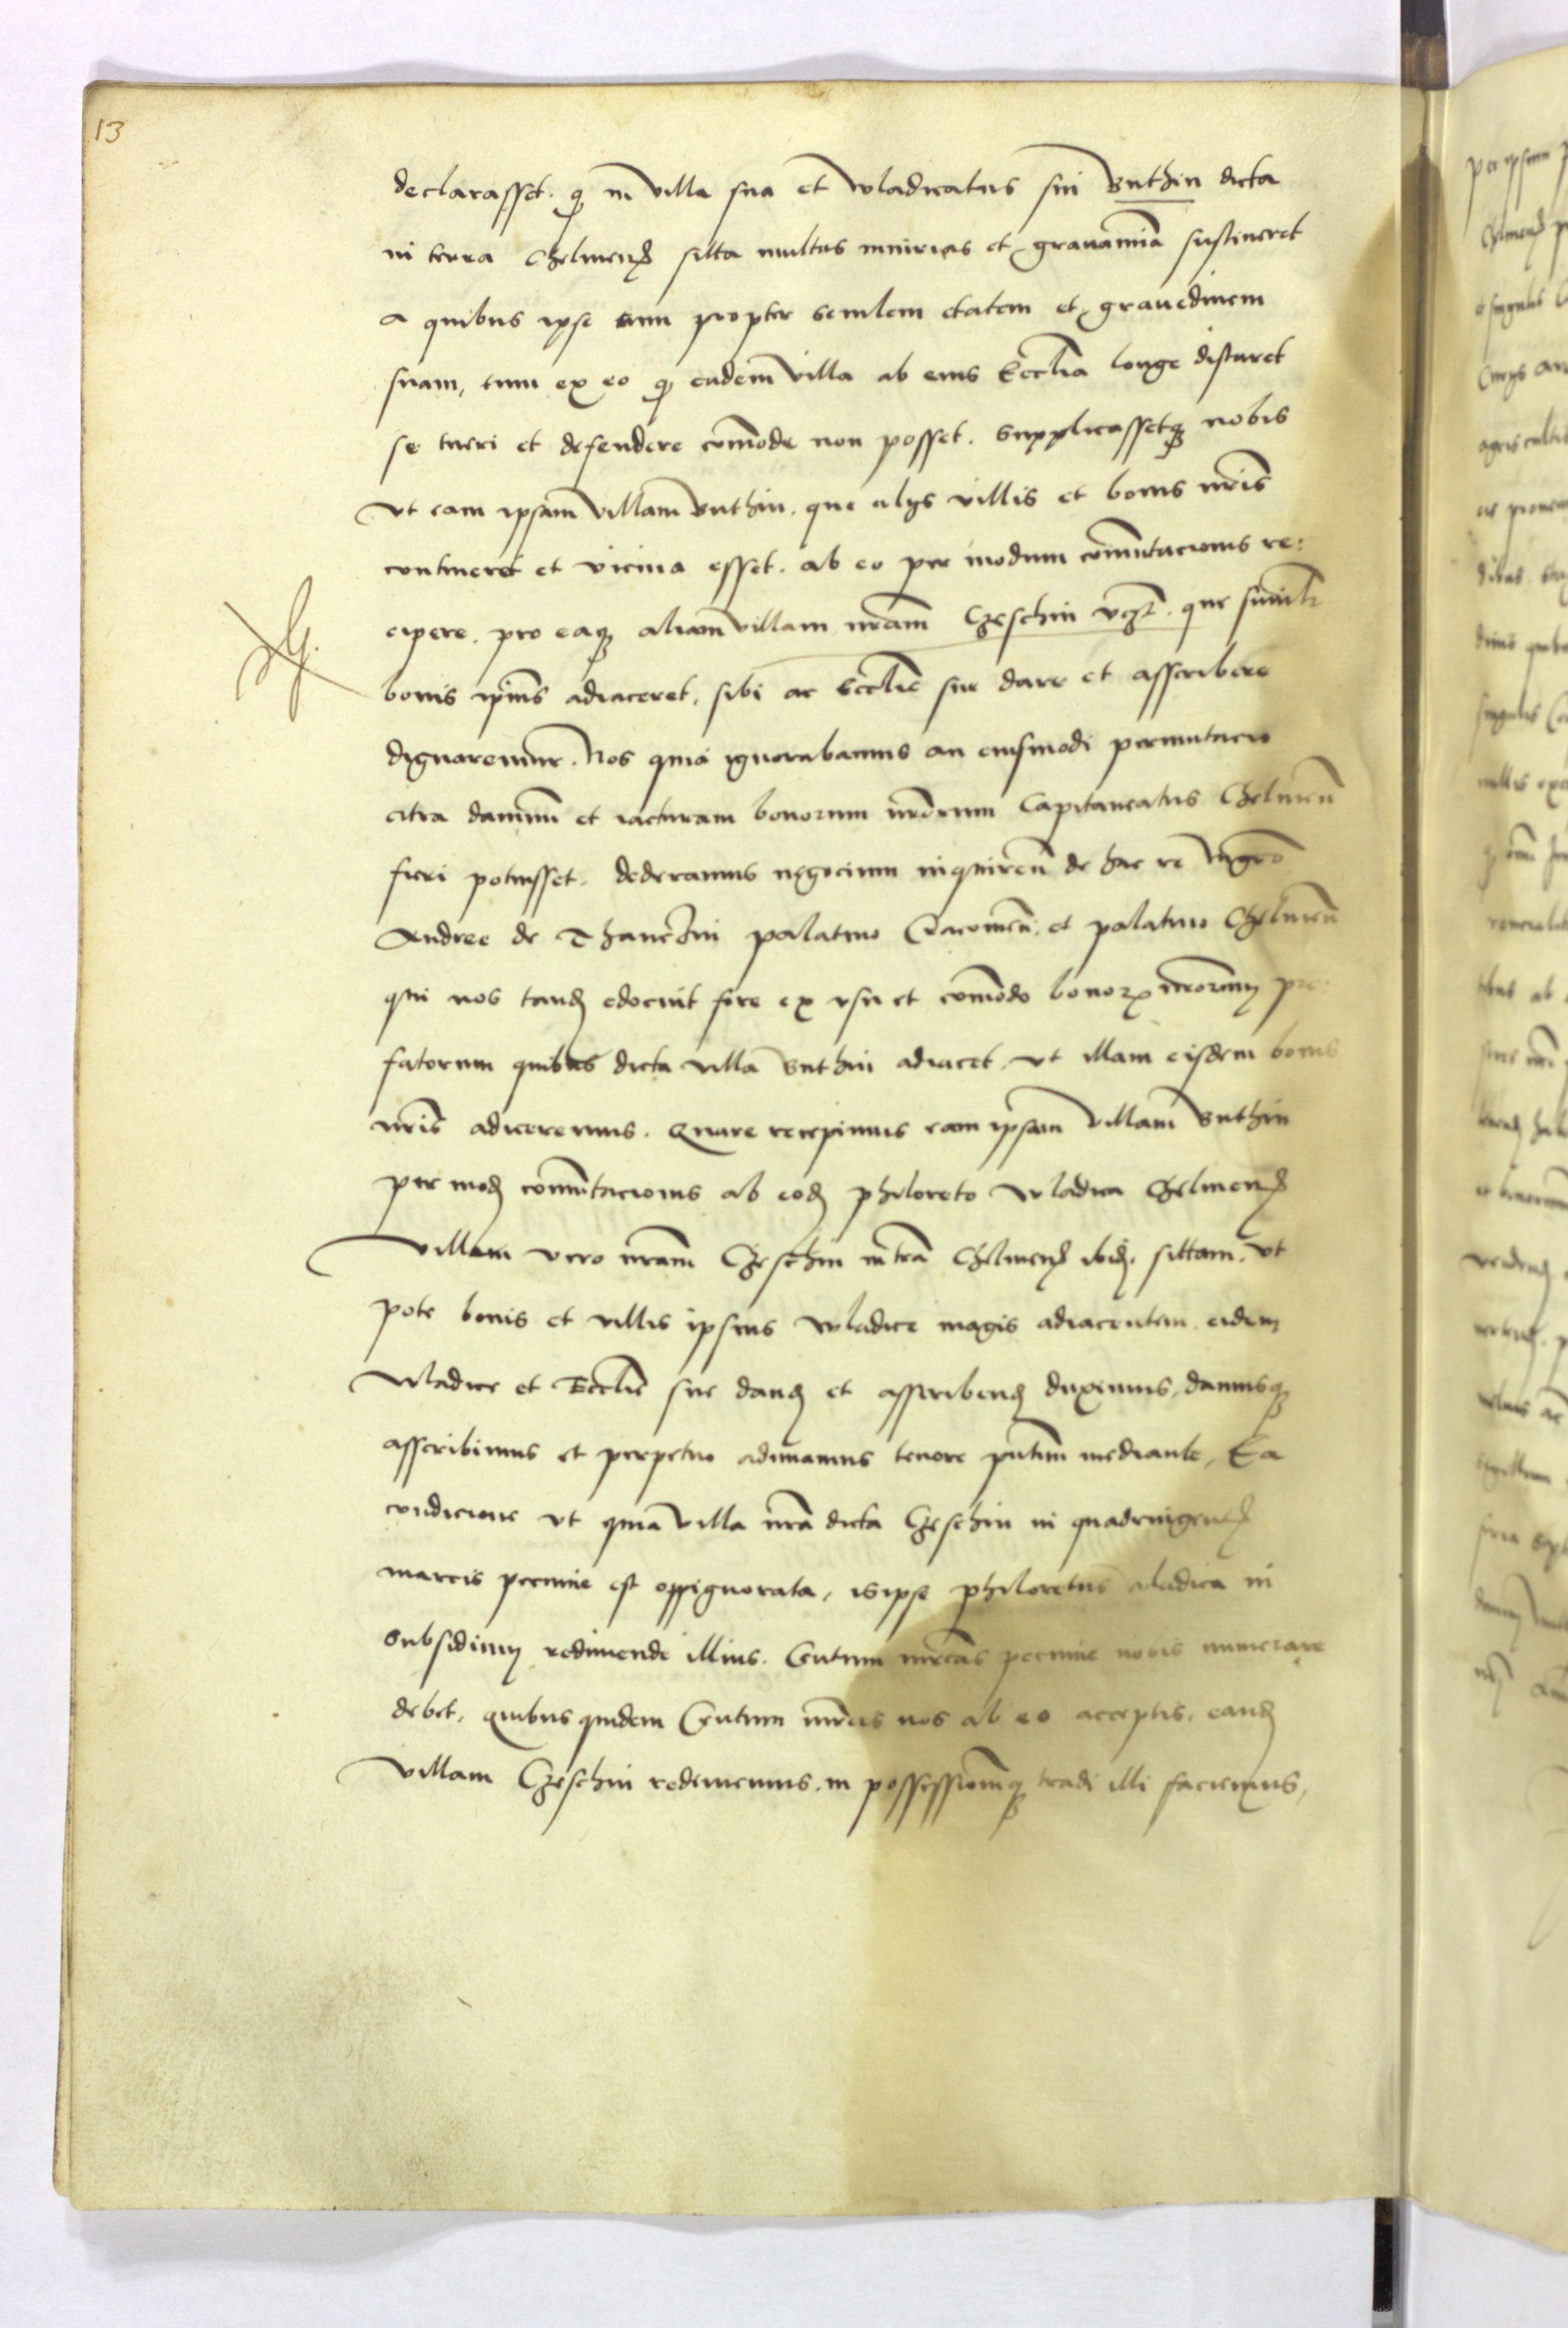 13
declarasset. q in villa sua et wladicatus sui Buthin dicta
in terra Chelmens sitta multas iniurias et grauamina sustineret
a quibus ipse cum propter senilem etatem et grauedinem
suam, tum ex eo q eadem villa ab eius Ecclia longe distaret
se tueri et defendere comode non posset. supplicassetq nobis
vt eam ipsam villam Buthin. que alys villis et bonis nris
contineret et vicina esset. ab eo per modum comutacionis re:
cipere. pro eaq aliam villam nram Czeschin que similr
bonis ipius adiaceret, sibi ac Ecclie sue dare et asscribere
dignaremur. Nos quia ignorabamus an eiusmodi permutacio
citra damnum et iacturam bonorum nrorum Capitaneatus Chelmen
fieri potuisset. dederamus negocium inquiren de hac re Mgco
Andree de Thanczin palatino Cracouien. et palatino Chelmen
qui nos tand edocuit fore ex vsu et comodo bonor nrorum pre:
fatorum quibus dicta villa Buthin adiacet. vt illam eisdem bonis
nris adiceremus. Quare recepimus eam ipsam villam Buthin
per mod comutacionis ab eod philoreto wladica Chelmens
Villam vero nram Czeschin in tra Chelmens ibid. sittam. vt
pote bonis et villis ipsius wladice magis adiacentem. eidem
wladice et Ecclie sue dand et asscribend duximus. damusq
asscribimus et perpetuo adunamus tenore pntium mediante, Ea
condicione vt quia villa nra dicta Czeschin in quadringent
marcis pecunie est oppignorata, is ipse philoretus wladica in
subsidium redimende illius. Centum mrcas pecunie nobis numerare
debet, quibus quidem Centum mrcis nos ab eo acceptis. eand
villam Czeschin redimemus. in possessionemq tradi illi faciemus,